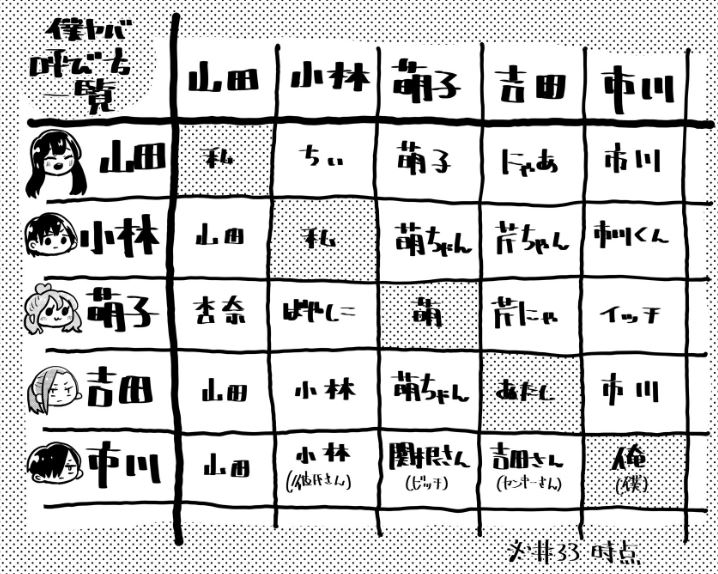 僕ヤバ
呼び方
一覧
山田 小林 萌子 吉田 市川
山田 私 ちぃ 萌子 にゃあ 市川
小林 山田 私 萌ちゃん 芹ちゃん 市川くん
萌子 杏奈 ばやしこ 萌 芹にゃ イッチ
吉田 山田 小林 萌ちゃん あたし 市川
市川 山田 小林 関根さん 吉田さん 俺
(彼氏さん) (ビッチ) (ヤンキーさん) (僕)
※#33 時点